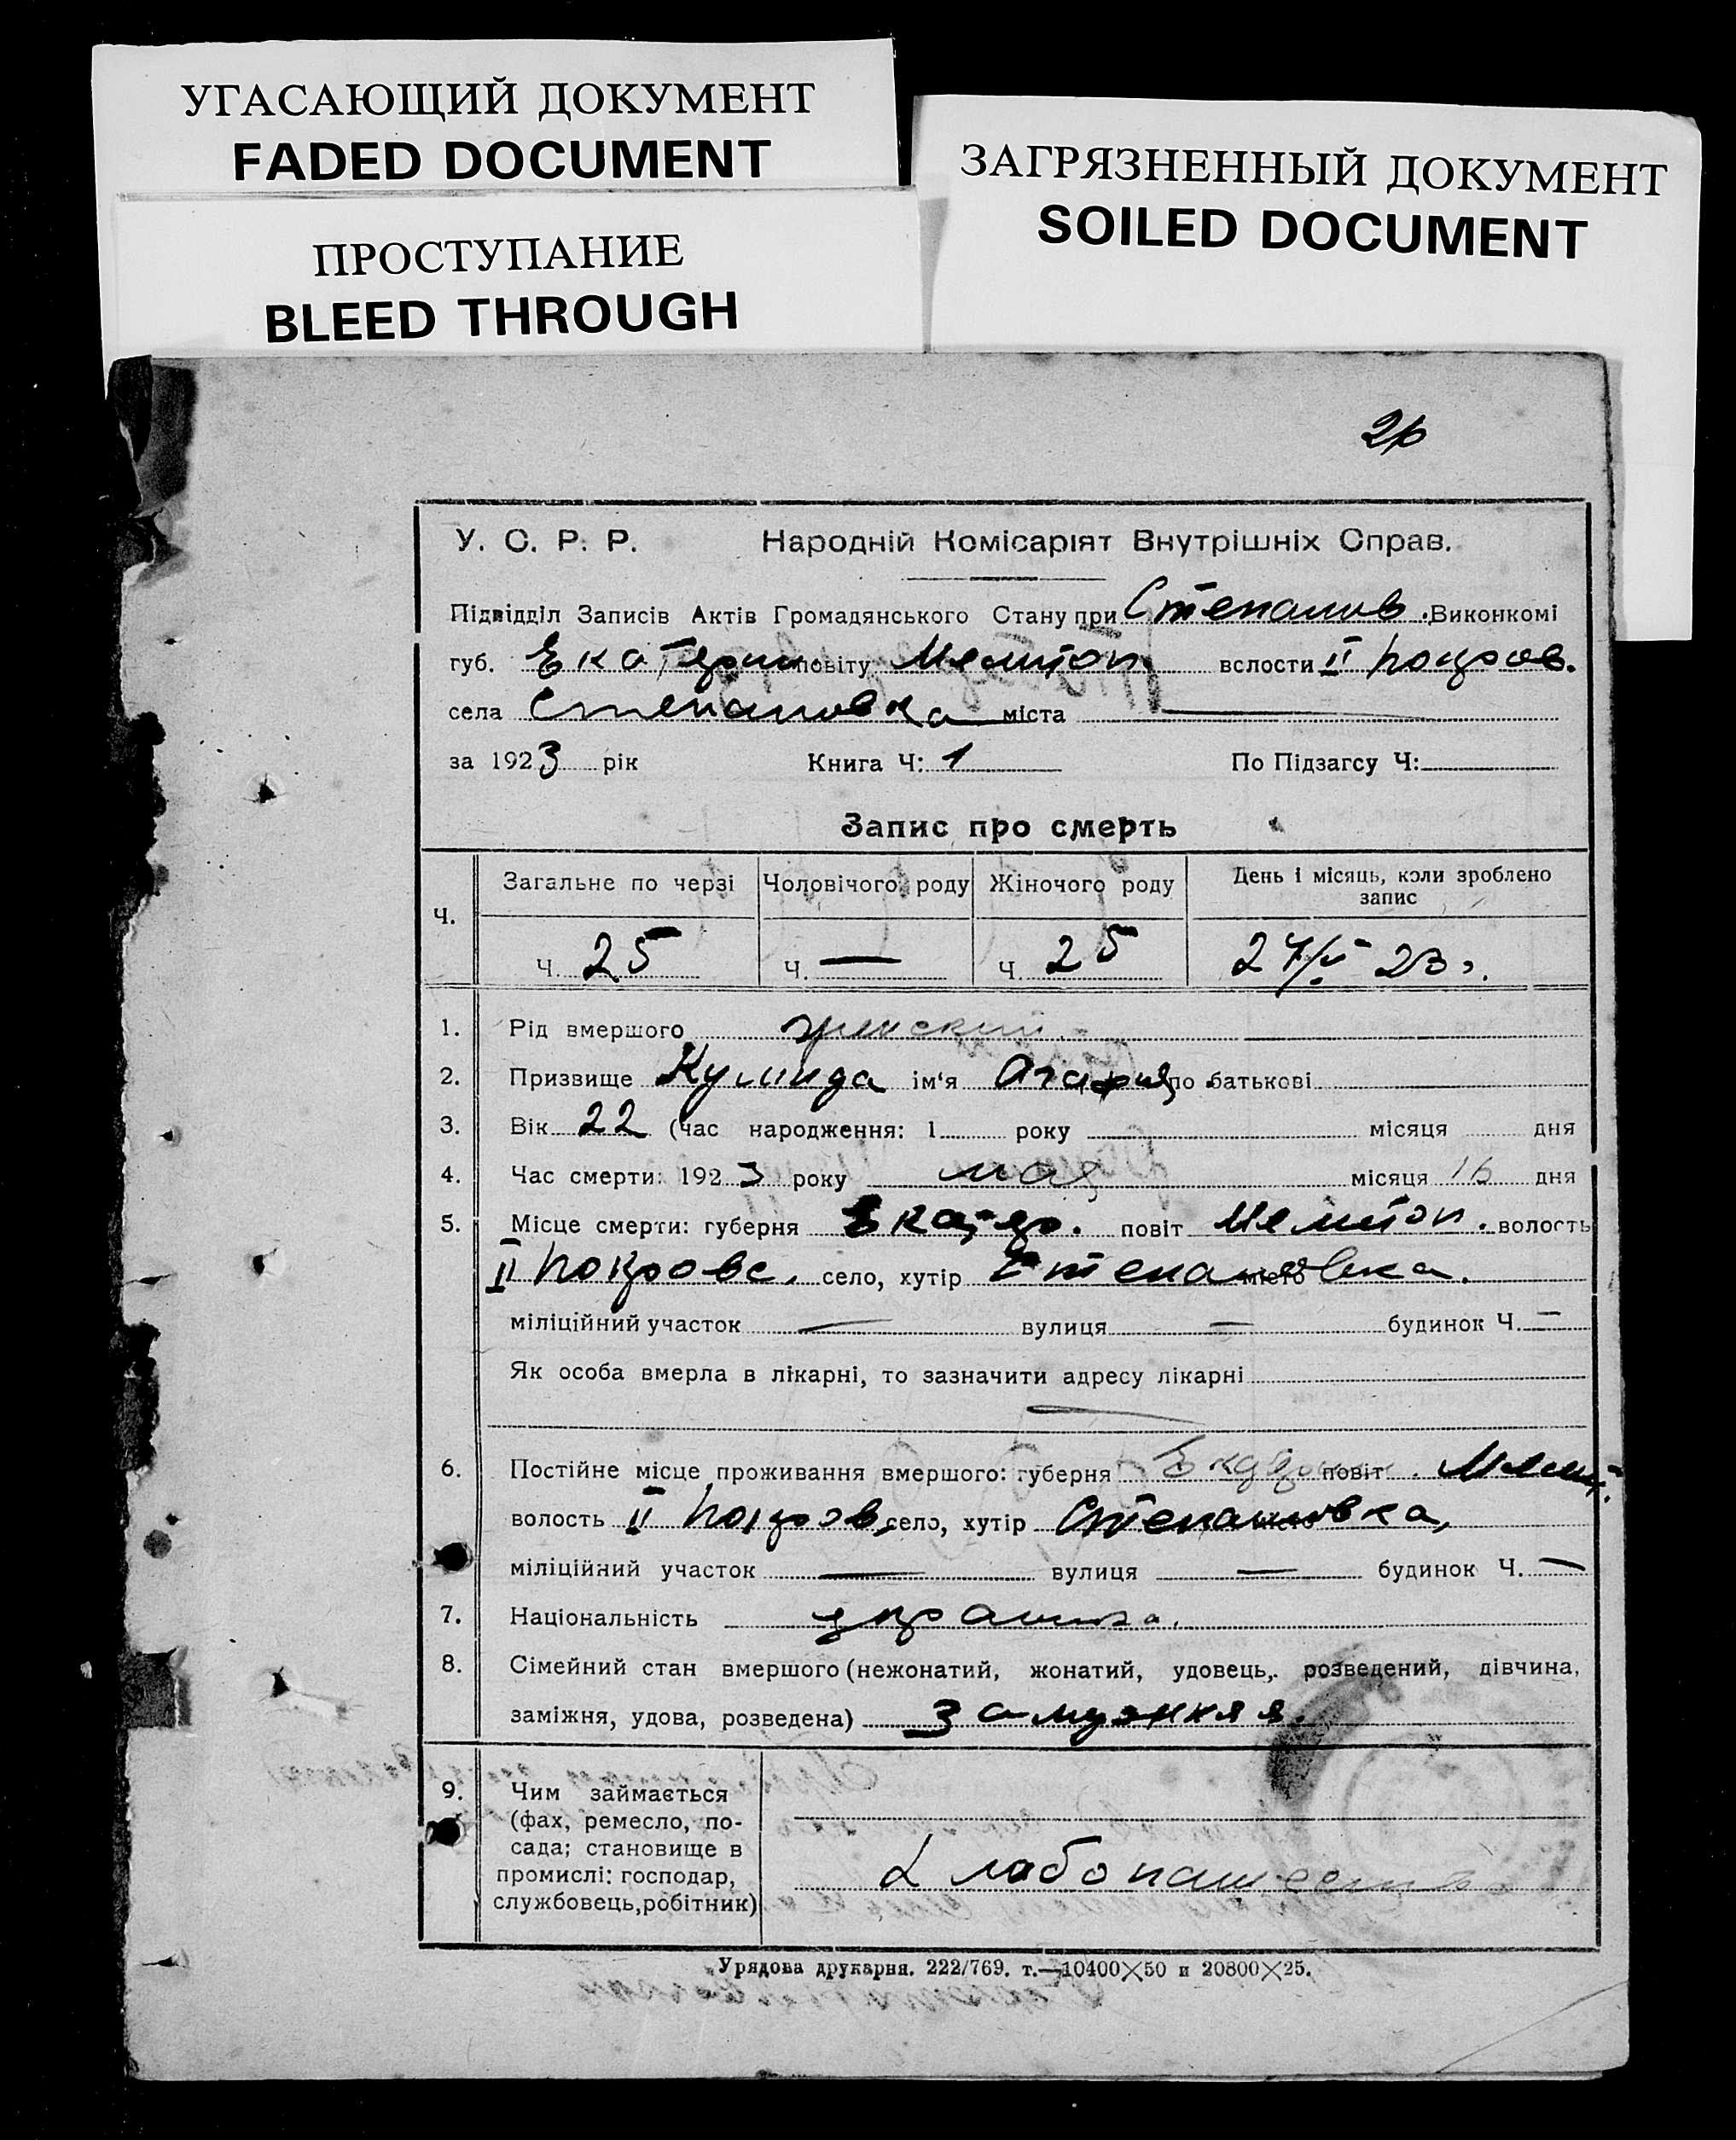 УГАСАЮЩИЙ ДОКУМЕНТ
FADED DOCUMENT
ПРОСТУПАНИЕ
BLEED THROUGH
ЗАГРЯЗНЕННЫЙ ДОКУМЕНТ
SOILED DOCUMENT
У. С. Р. Р. Народній Комісаріят Внутрішніх Справ.
Підвідділ Записів Актів Громадянського Стану при Степанив. Виконкомі
губ. Екатерин повіту Мелитоп. волости II Покров.
села Степановка міста
за 1923 рік Книга Ч: 1 По Підзагсу Ч:
Запис про смерть
Ч. Загальне по черзі Чоловічого роду Жіночого роду День і місяць, коли зроблено запис
Ч. 25 Ч. — Ч. 25 23 г.
1. Рід вмершого женский
2. Призвище ім'я Агафия по батькові
3. Вік 22 (час народження: 1 року місяця дня
4. Час смерти: 1923 року мая місяця 16 дня
5. Місце смерти: губерня Екатер. повіт Мелитоп. волость
II Покровс. село, хутір Степановка. місто
міліційний участок — вулиця — будинок Ч. —
Як особа вмерла в лікарні, то зазначити адресу лікарні
—
6. Постійне місце проживання вмершого: губерня Екатер повіт Мелит.
волость II Покров, село, хутір Степановка, місто
міліційний участок — вулиця — будинок Ч. —
7. Національність
8. Сімейний стан вмершого (нежонатий, жонатий, удовець, розведений, дівчина,
заміжня, удова, розведена) замужняя.
9. Чим займається
(фах, ремесло, по-
сада; становище в
промислі: господар,
службовець, робітник)
Урядова друкарня. 222/769. т.—10400×50 и 20800×25.